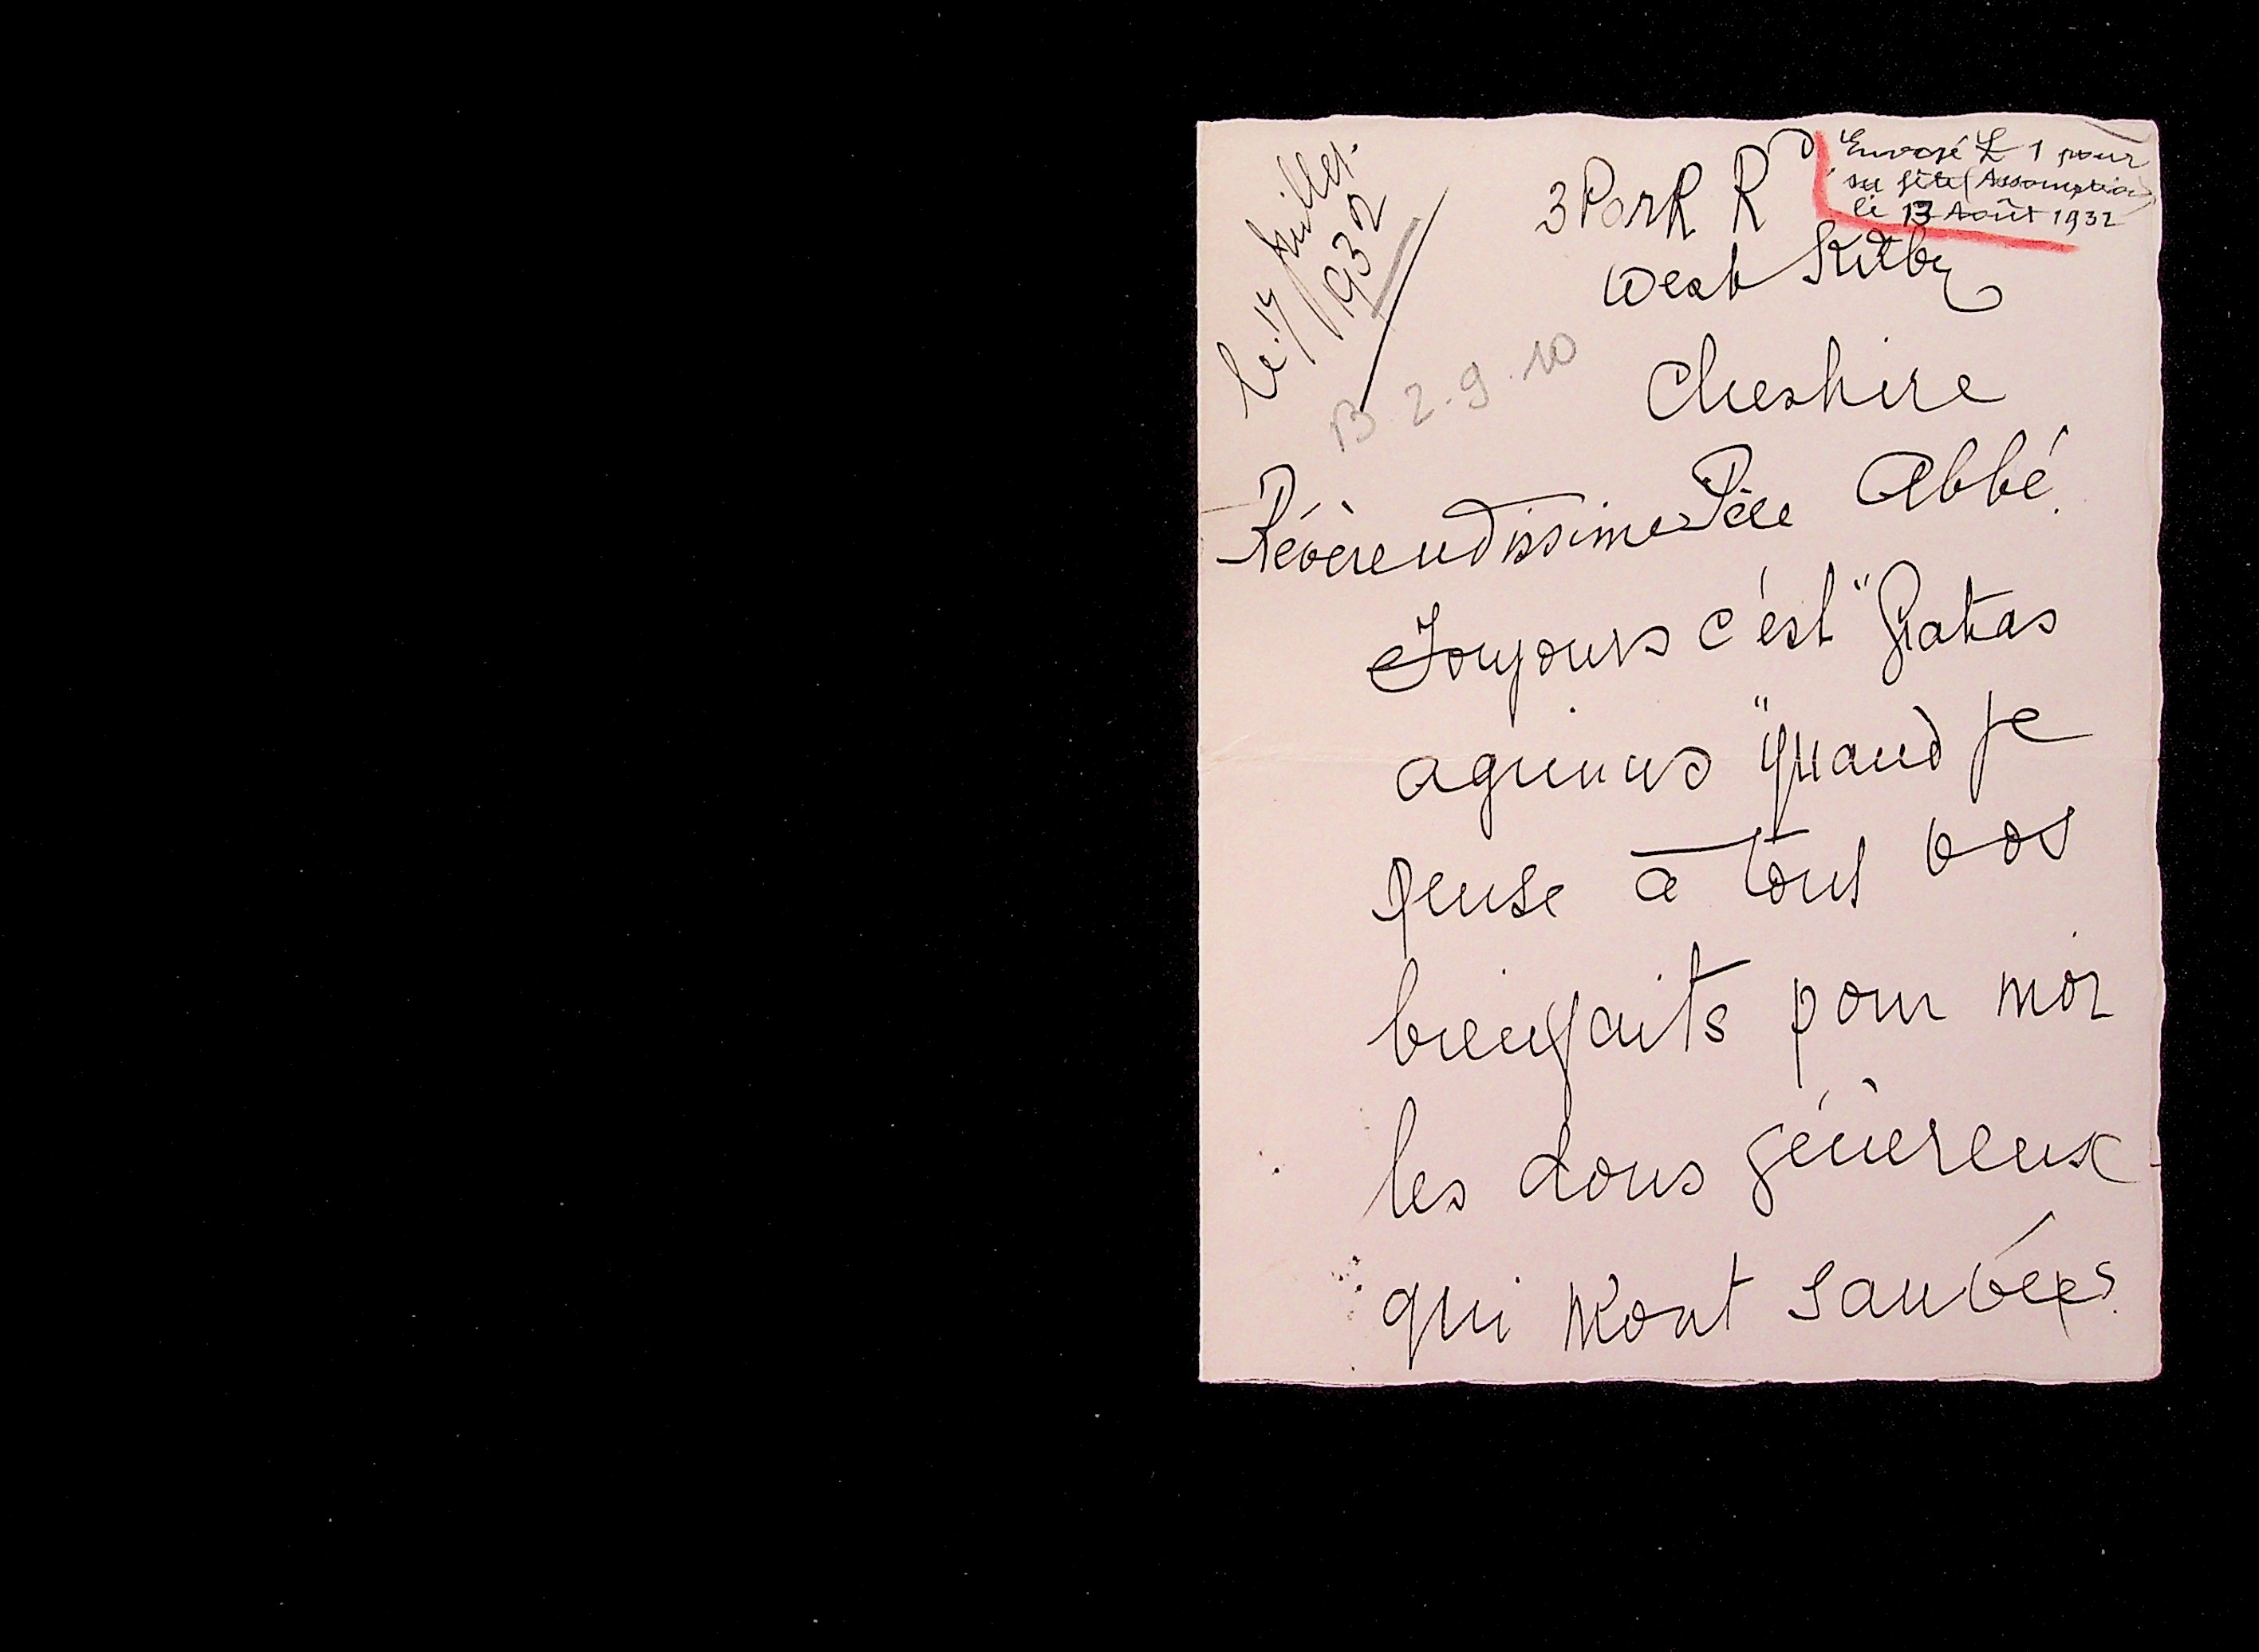 Envoyé £ 1 pour
sa fête (Assomption)
le 13 Août 1932
le 17 juillet
1932
3 Park Rd
West Kirby
Cheshire
B 2.9.10
Révèrendissime Père Abbé.
Toujours c'est "Gratias
agimus" quand je
pense à tous vos
bienfaits pour moi
les dons génèreux
qui m'ont sauvées.